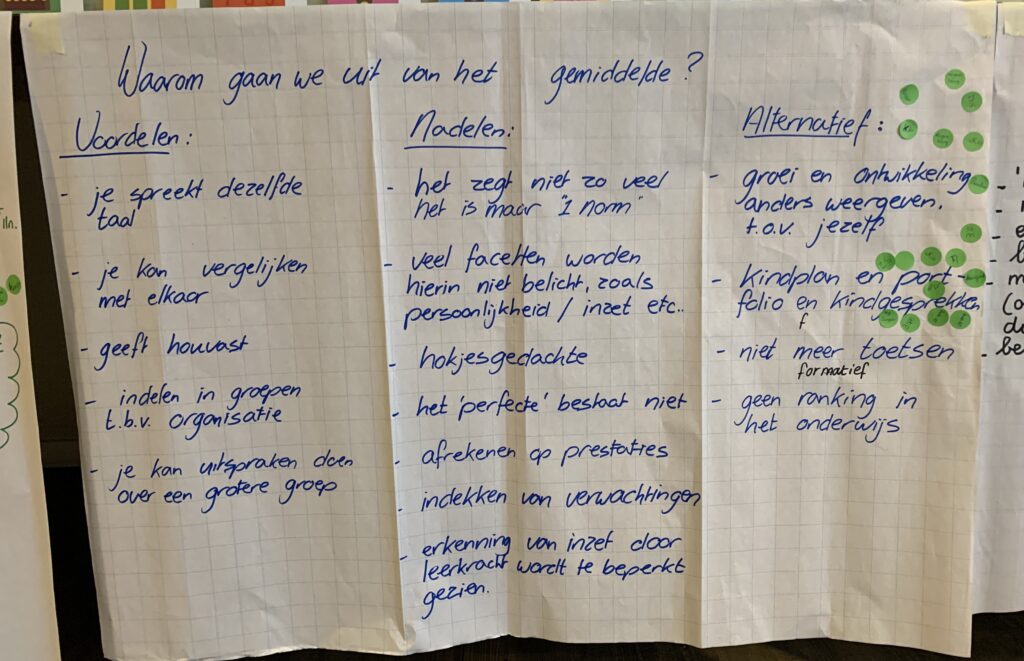 Waarom gaan we uit van het gemiddelde?
Voordelen:
- je spreekt dezelfde
taal
- je kan vergelijken
met elkaar
- geeft houvast
- indelen in groepen
t.b.v. organisatie
- je kan uitspraken doen
over een grotere groep
Nadelen:
- het zegt niet zo veel
het is maar "1 norm"
- veel facetten worden
hierin niet belicht, zoals
persoonlijkheid / inzet etc..
- hokjesgedachte
- het 'perfecte' bestaat niet
- afrekenen op prestaties
- indekken van verwachtingen
- erkenning van inzet door
leerkracht wordt te beperkt
gezien.
Alternatief:
- groei en ontwikkeling
anders weergeven.
t.o.v. jezelf
- kindplan en port-
folio en kindgesprekken
f
- niet meer toetsen
formatief
- geen ranking in
het onderwijs